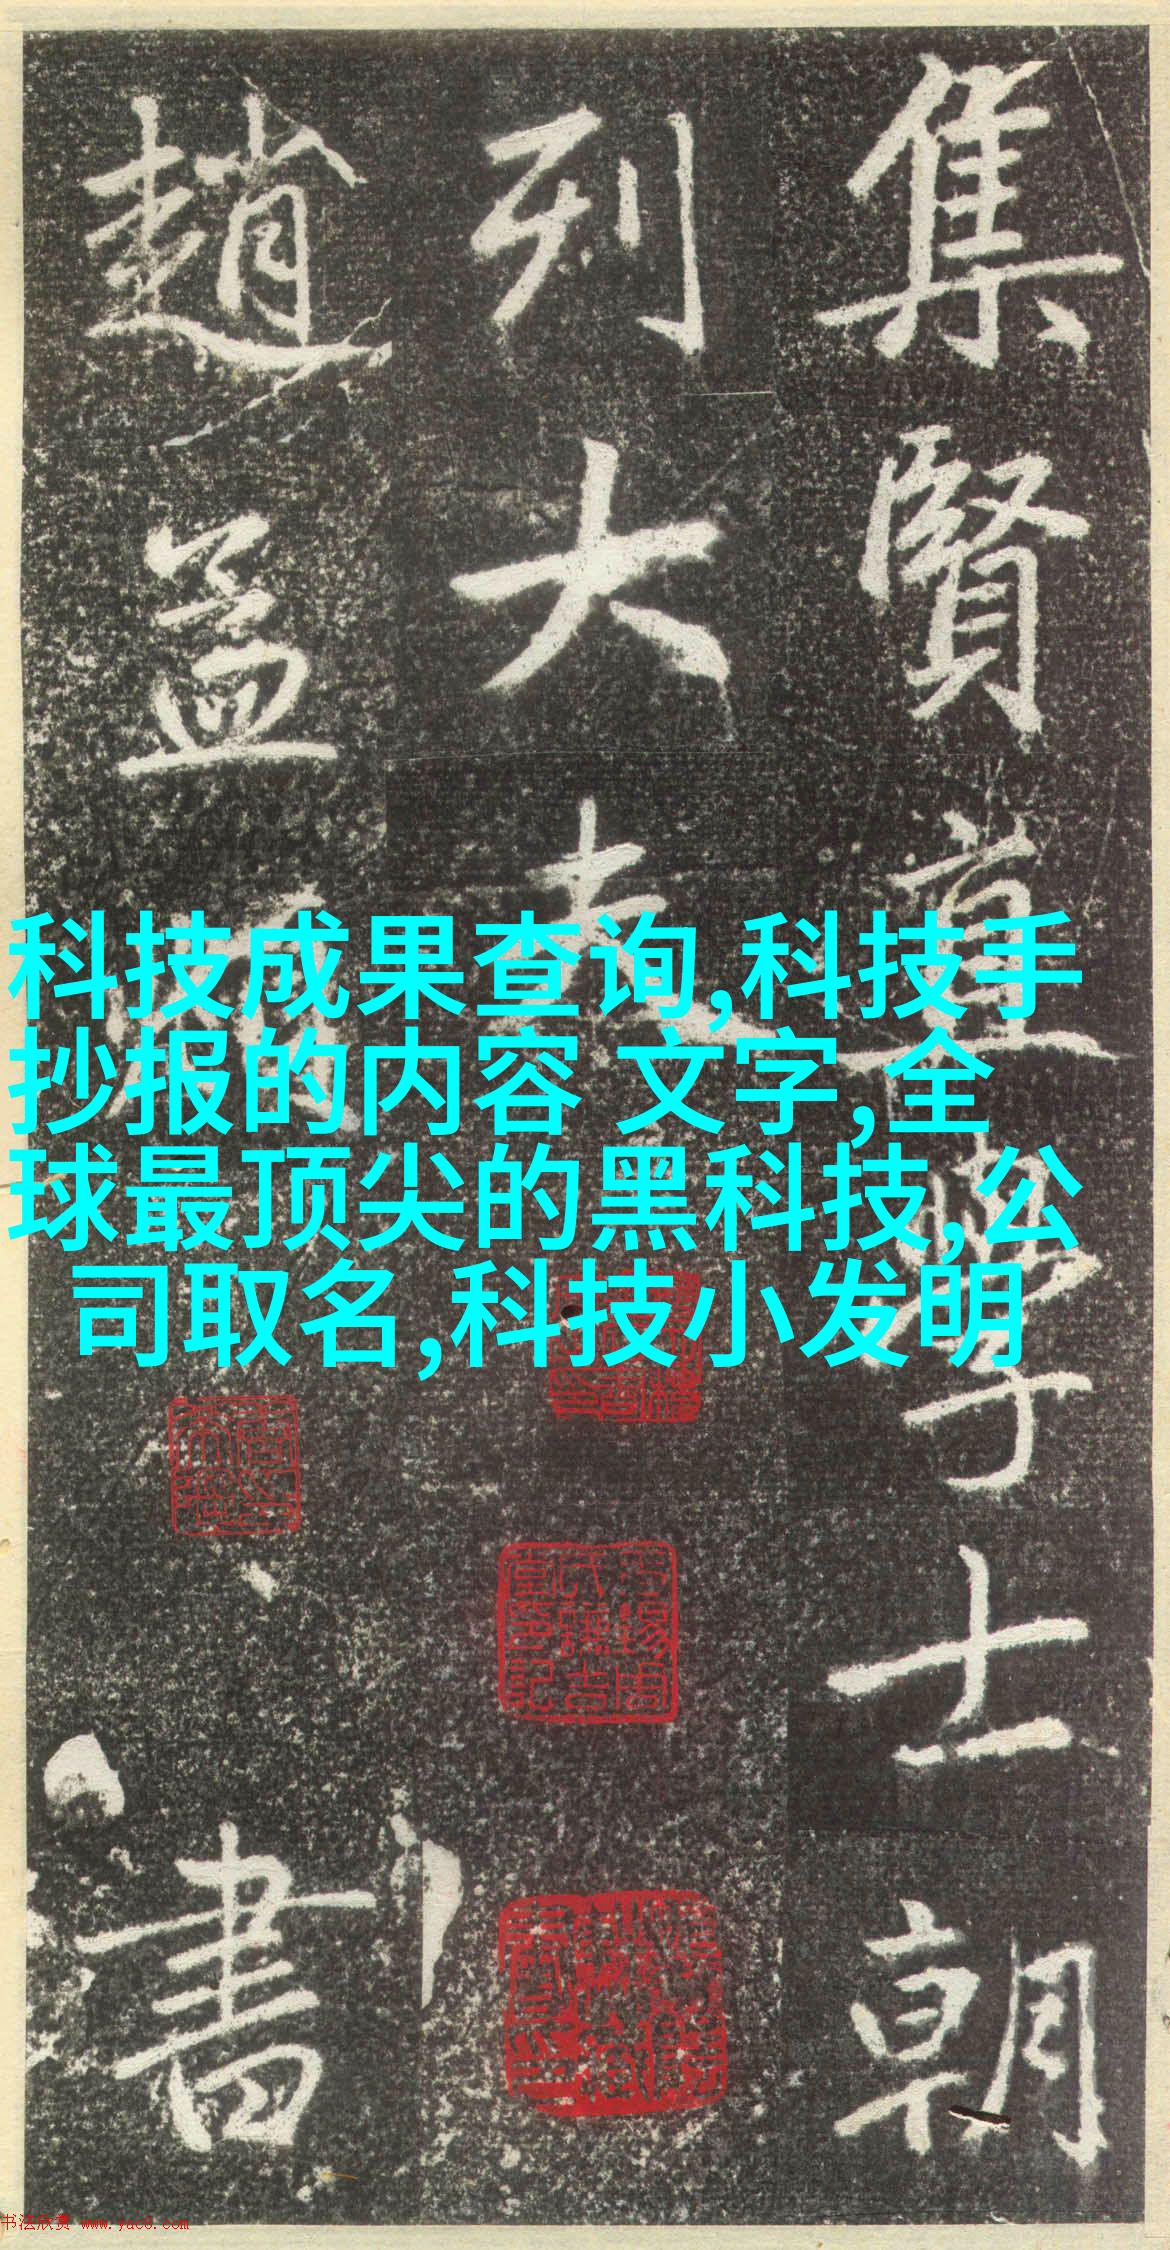 集賢直學士朝
列大夫
趙孟頫
書
科技成果查询,科技手
抄报的内容 文字,全
球最顶尖的黑科技,公
司取名,科技小发明
书法欣赏 www.yac8.com